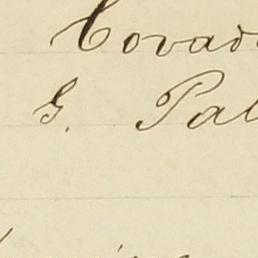 Covad
G. Pal